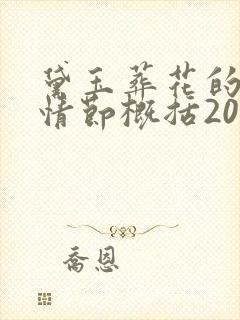 黛玉葬花的
情节概括20
乔恩